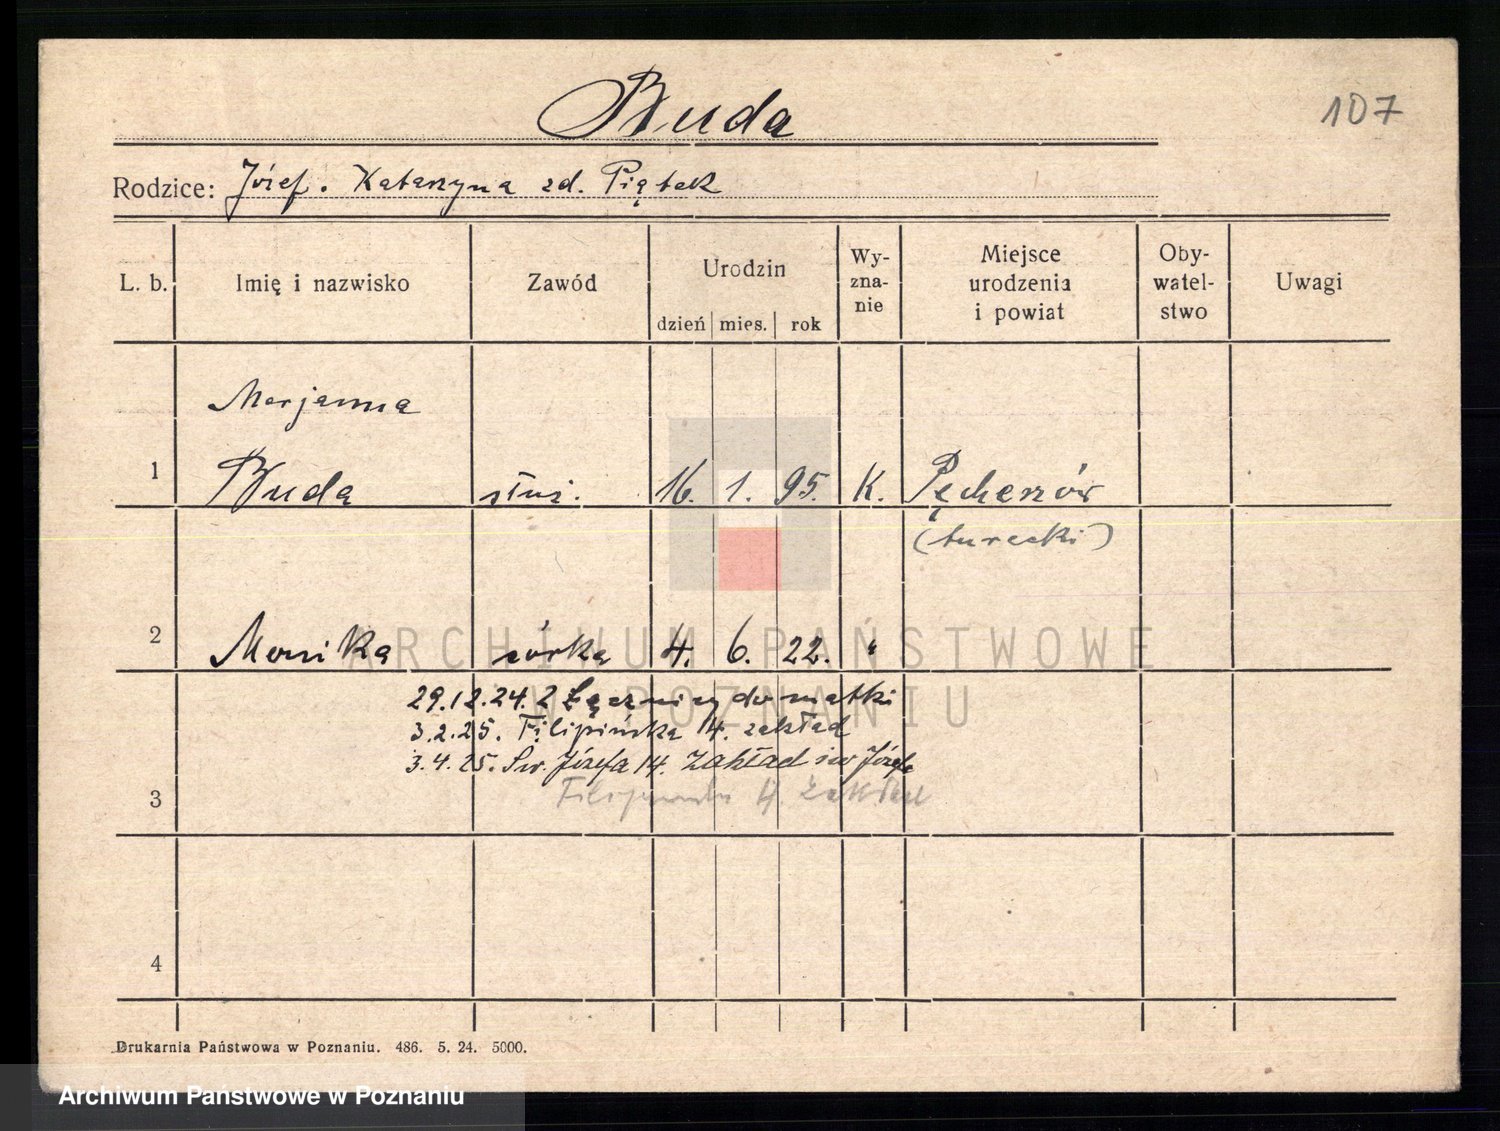 Buda
107
Rodzice: Józef. Katarzyna zd. Piątek
L. b. Imię i nazwisko Zawód Urodzin Wy-zna-nie Miejsce urodzenia i powiat Oby-watel-stwo Uwagi
dzień mies. rok
Marjanna
1 Buda służ. 16. 1. 95. K. Pęcherzów
(turecki)
2 Monika córka 4. 6. 22. "
ARCHIWUM PAŃSTWOWE
W POZNANIU
29.12.24. z Łęczycy do matki
3.2.25. Filipińska 4. zakład
3.4.25. Św. Józefa 14. Zakład św Józefa
4. Zakład
3
4
Drukarnia Państwowa w Poznaniu. 486. 5. 24. 5000.
Archiwum Państwowe w Poznaniu